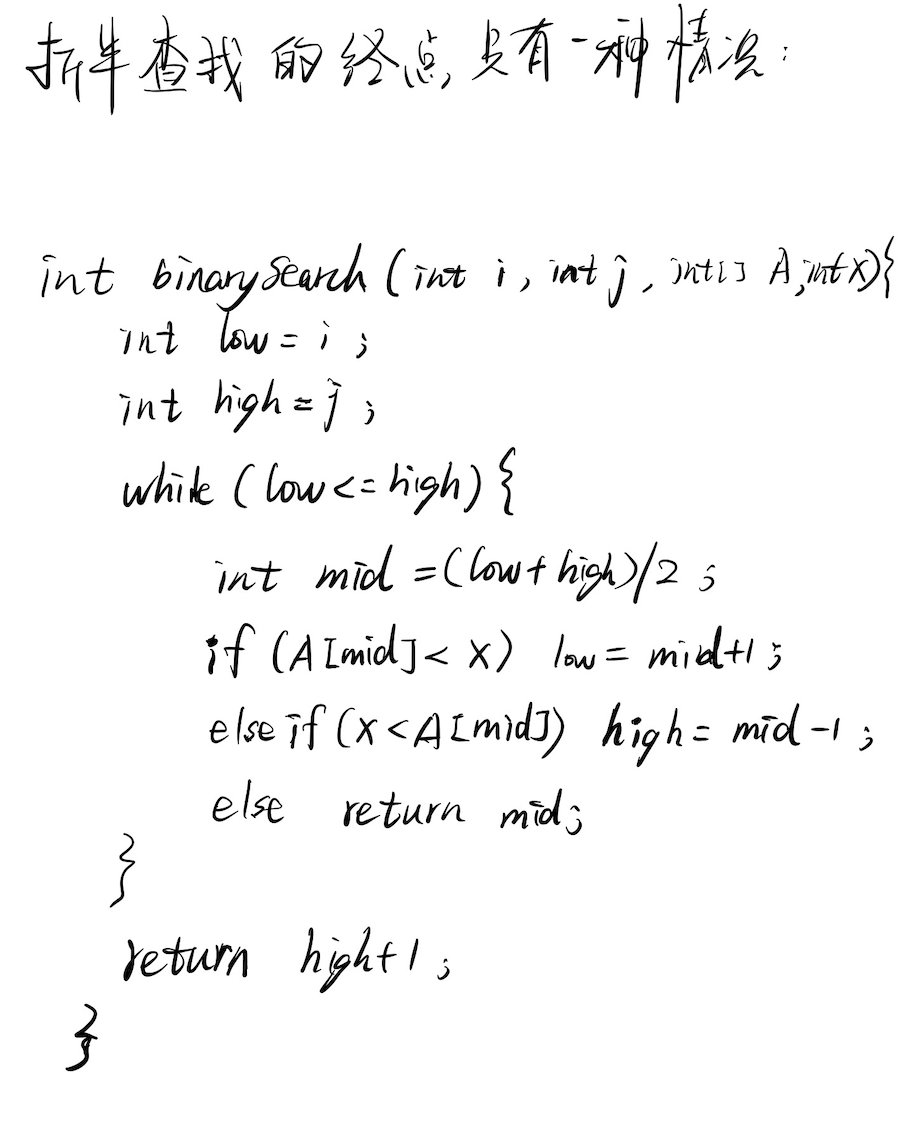 折半查找的终点,只有一种情况:
int binarySearch(int i, int j, int[] A,int x){
int low = i ;
int high = j ;
while (low <= high) {
int mid = (low + high)/2 ;
if (A[mid] < x) low = mid+1 ;
else if (x < A[mid]) high = mid-1 ;
else return mid;
}
return high+1 ;
}